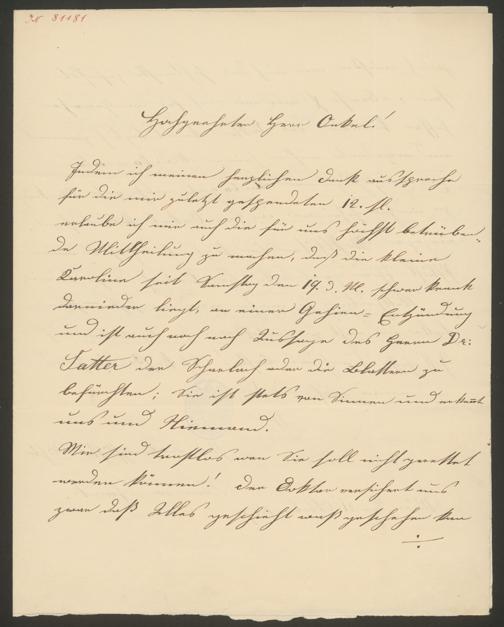 IN 81181
Hochgeehrter Herr Onkel!
Indem ich meinen herzlichen Dank ausspreche
für die mir zuletzt gespendeten 12. fl.
erlaube ich mir auch die für uns höchst betrüben-
de Mittheilung zu machen, daß die kleine
Karoline seit Samstag den 19. d. M. schwer krank
darnieder liegt, an einer Gehirn-Entzündung
und ist auch noch nach Aussage des Herrn Dr:
Satter der Scharlach oder die Blattern zu
befürchten; Sie ist stets von Sinnen und erkennt
uns und Niemand.
Wir sind trostlos wen Sie soll nicht gerettet
werden können! Der Doktor versichert uns
zwar daß Alles geschieht was geschehen kan